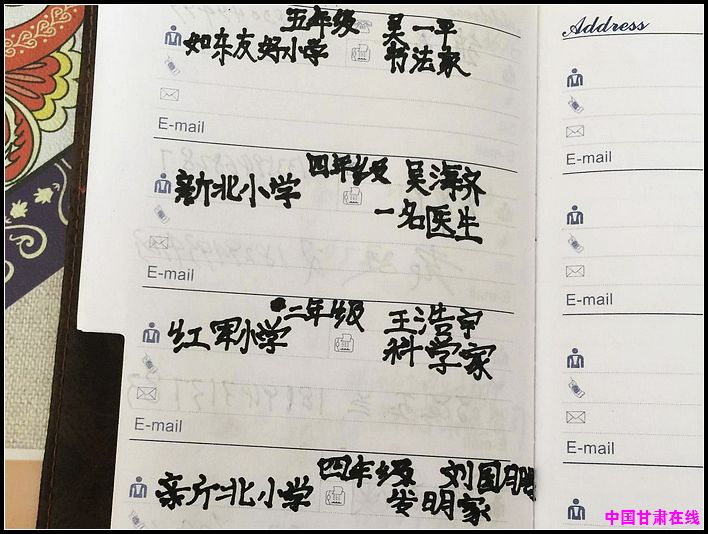 五年级 吴一平
如东友好小学 书法家
E-mail
四年级 吴海济
新北小学 一名医生
E-mail
二年级 王浩宇
红军小学 科学家
E-mail
四年级 刘国鹏
新北小学 发明家
Address
E-mail
E-mail
E-mail
中国甘肃在线